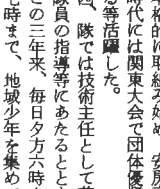 的に取組み始め、安房
時代には関東大会で団体優
る等活躍した。
四、隊では技術主任として
隊員の指導等にあたるとと
この三年来、毎日夕方六時
七時まで、地域少年を集め